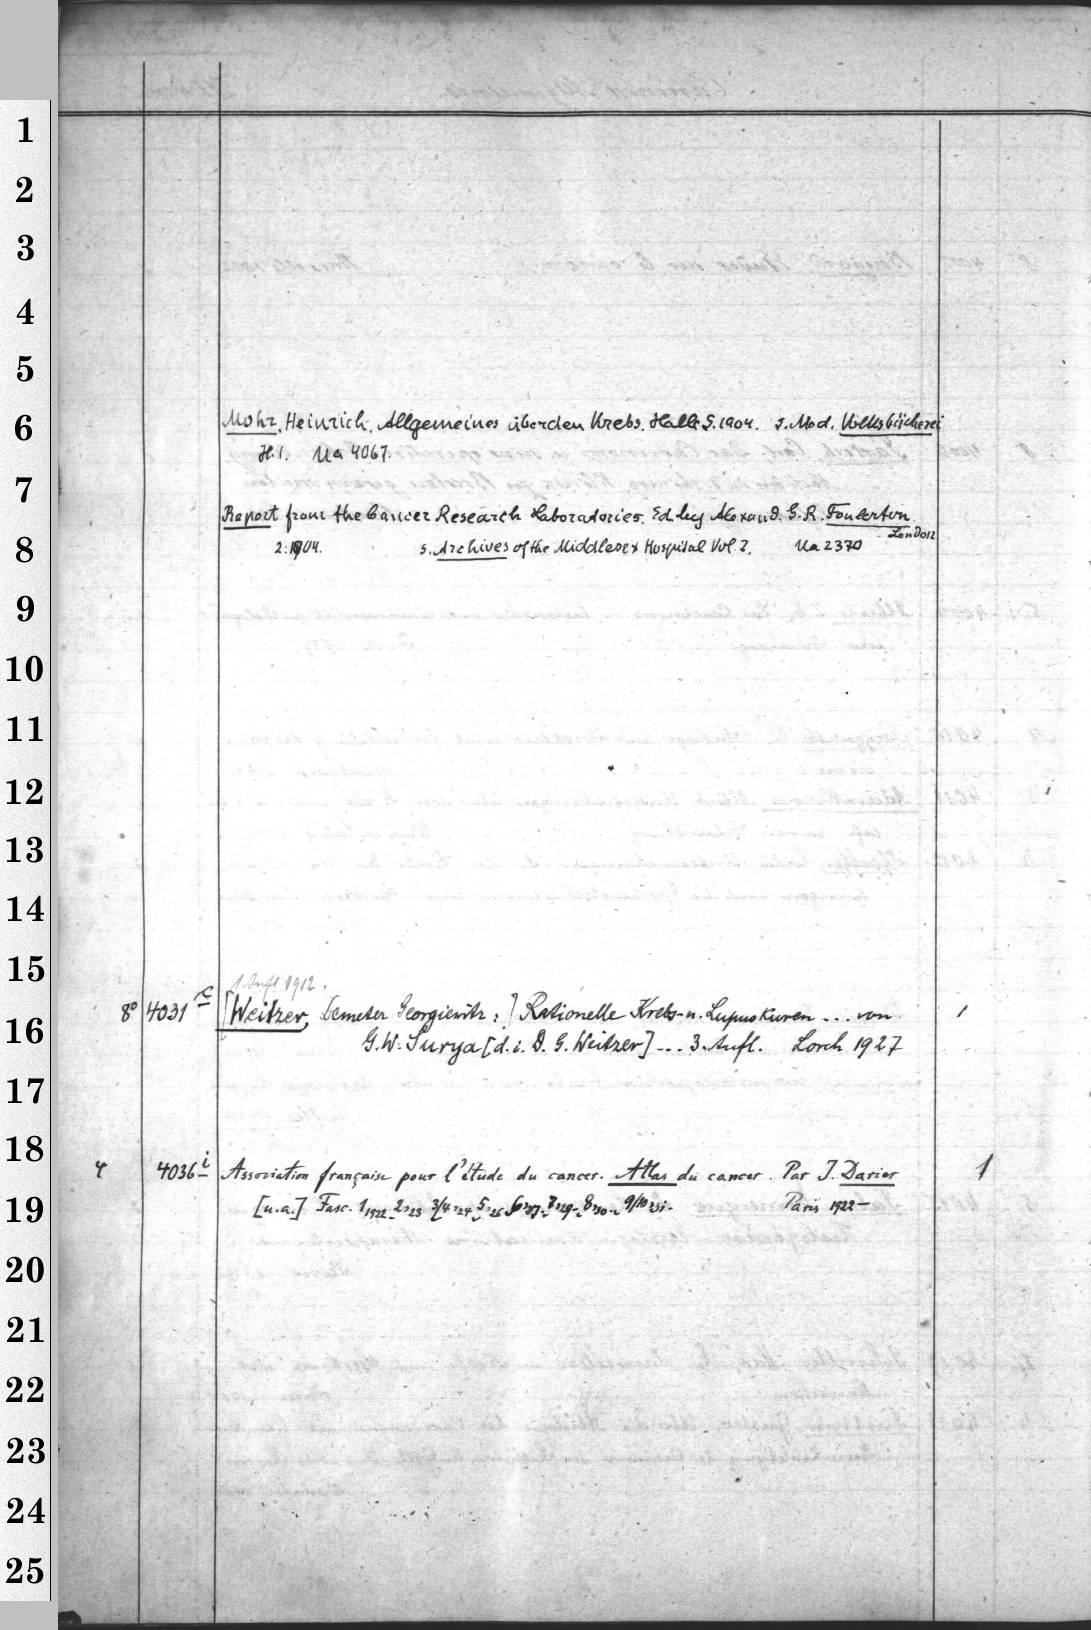 1
2
3
4
5
6
7
8
9
10
11
12
13
14
15
16
17
18
19
20
21
22
23
24
25
Mohr, Heinrich, Allgemeines über den Krebs. Halle S. 1904. s. Med. Volksbücherei
H. 1. Ua 4067.
Report from the Cancer Research Laboratories. Ed. by Alexand. G. R. Foulerton.
London
2: 1904. s. Archives of the Middlesex Hospital Vol. 2. Ua 2370
1. Aufl 1912.
8° 4031 c [Weitzer, Demeter Georgiewitz:] Rationelle Krebs- u. Lupuskuren ... von 1
G. W. Surya [d. i. D. G. Weitzer] ... 3. Aufl. Lorch 1927
4 4036 i Association française pour l'étude du cancer. Atlas du cancer. Par J. Darier 1
[u. a.] Fasc. 1, 1922 2, 23 3/4, 24 5, 26 6, 27 7, 29 8, 30 9/10, 31. Paris 1922 –